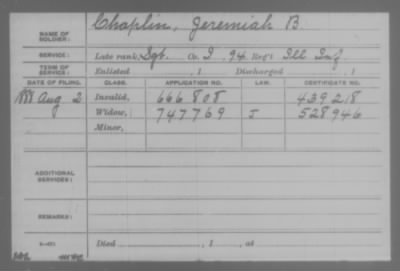 NAME OF SOLDIER: Chaplin, Jeremiah B.
SERVICE: Late rank, Sgt. Co. I, 94 Reg't Ill Inf
TERM OF SERVICE: Enlisted , 1 Discharged , 1
DATE OF FILING. CLASS. APPLICATION NO. LAW. CERTIFICATE NO.
Aug 2 Invalid, 666 808 439 218
Widow, 747 769 J 528 946
Minor,
ADDITIONAL SERVICES:
REMARKS:
Died , 1 , at